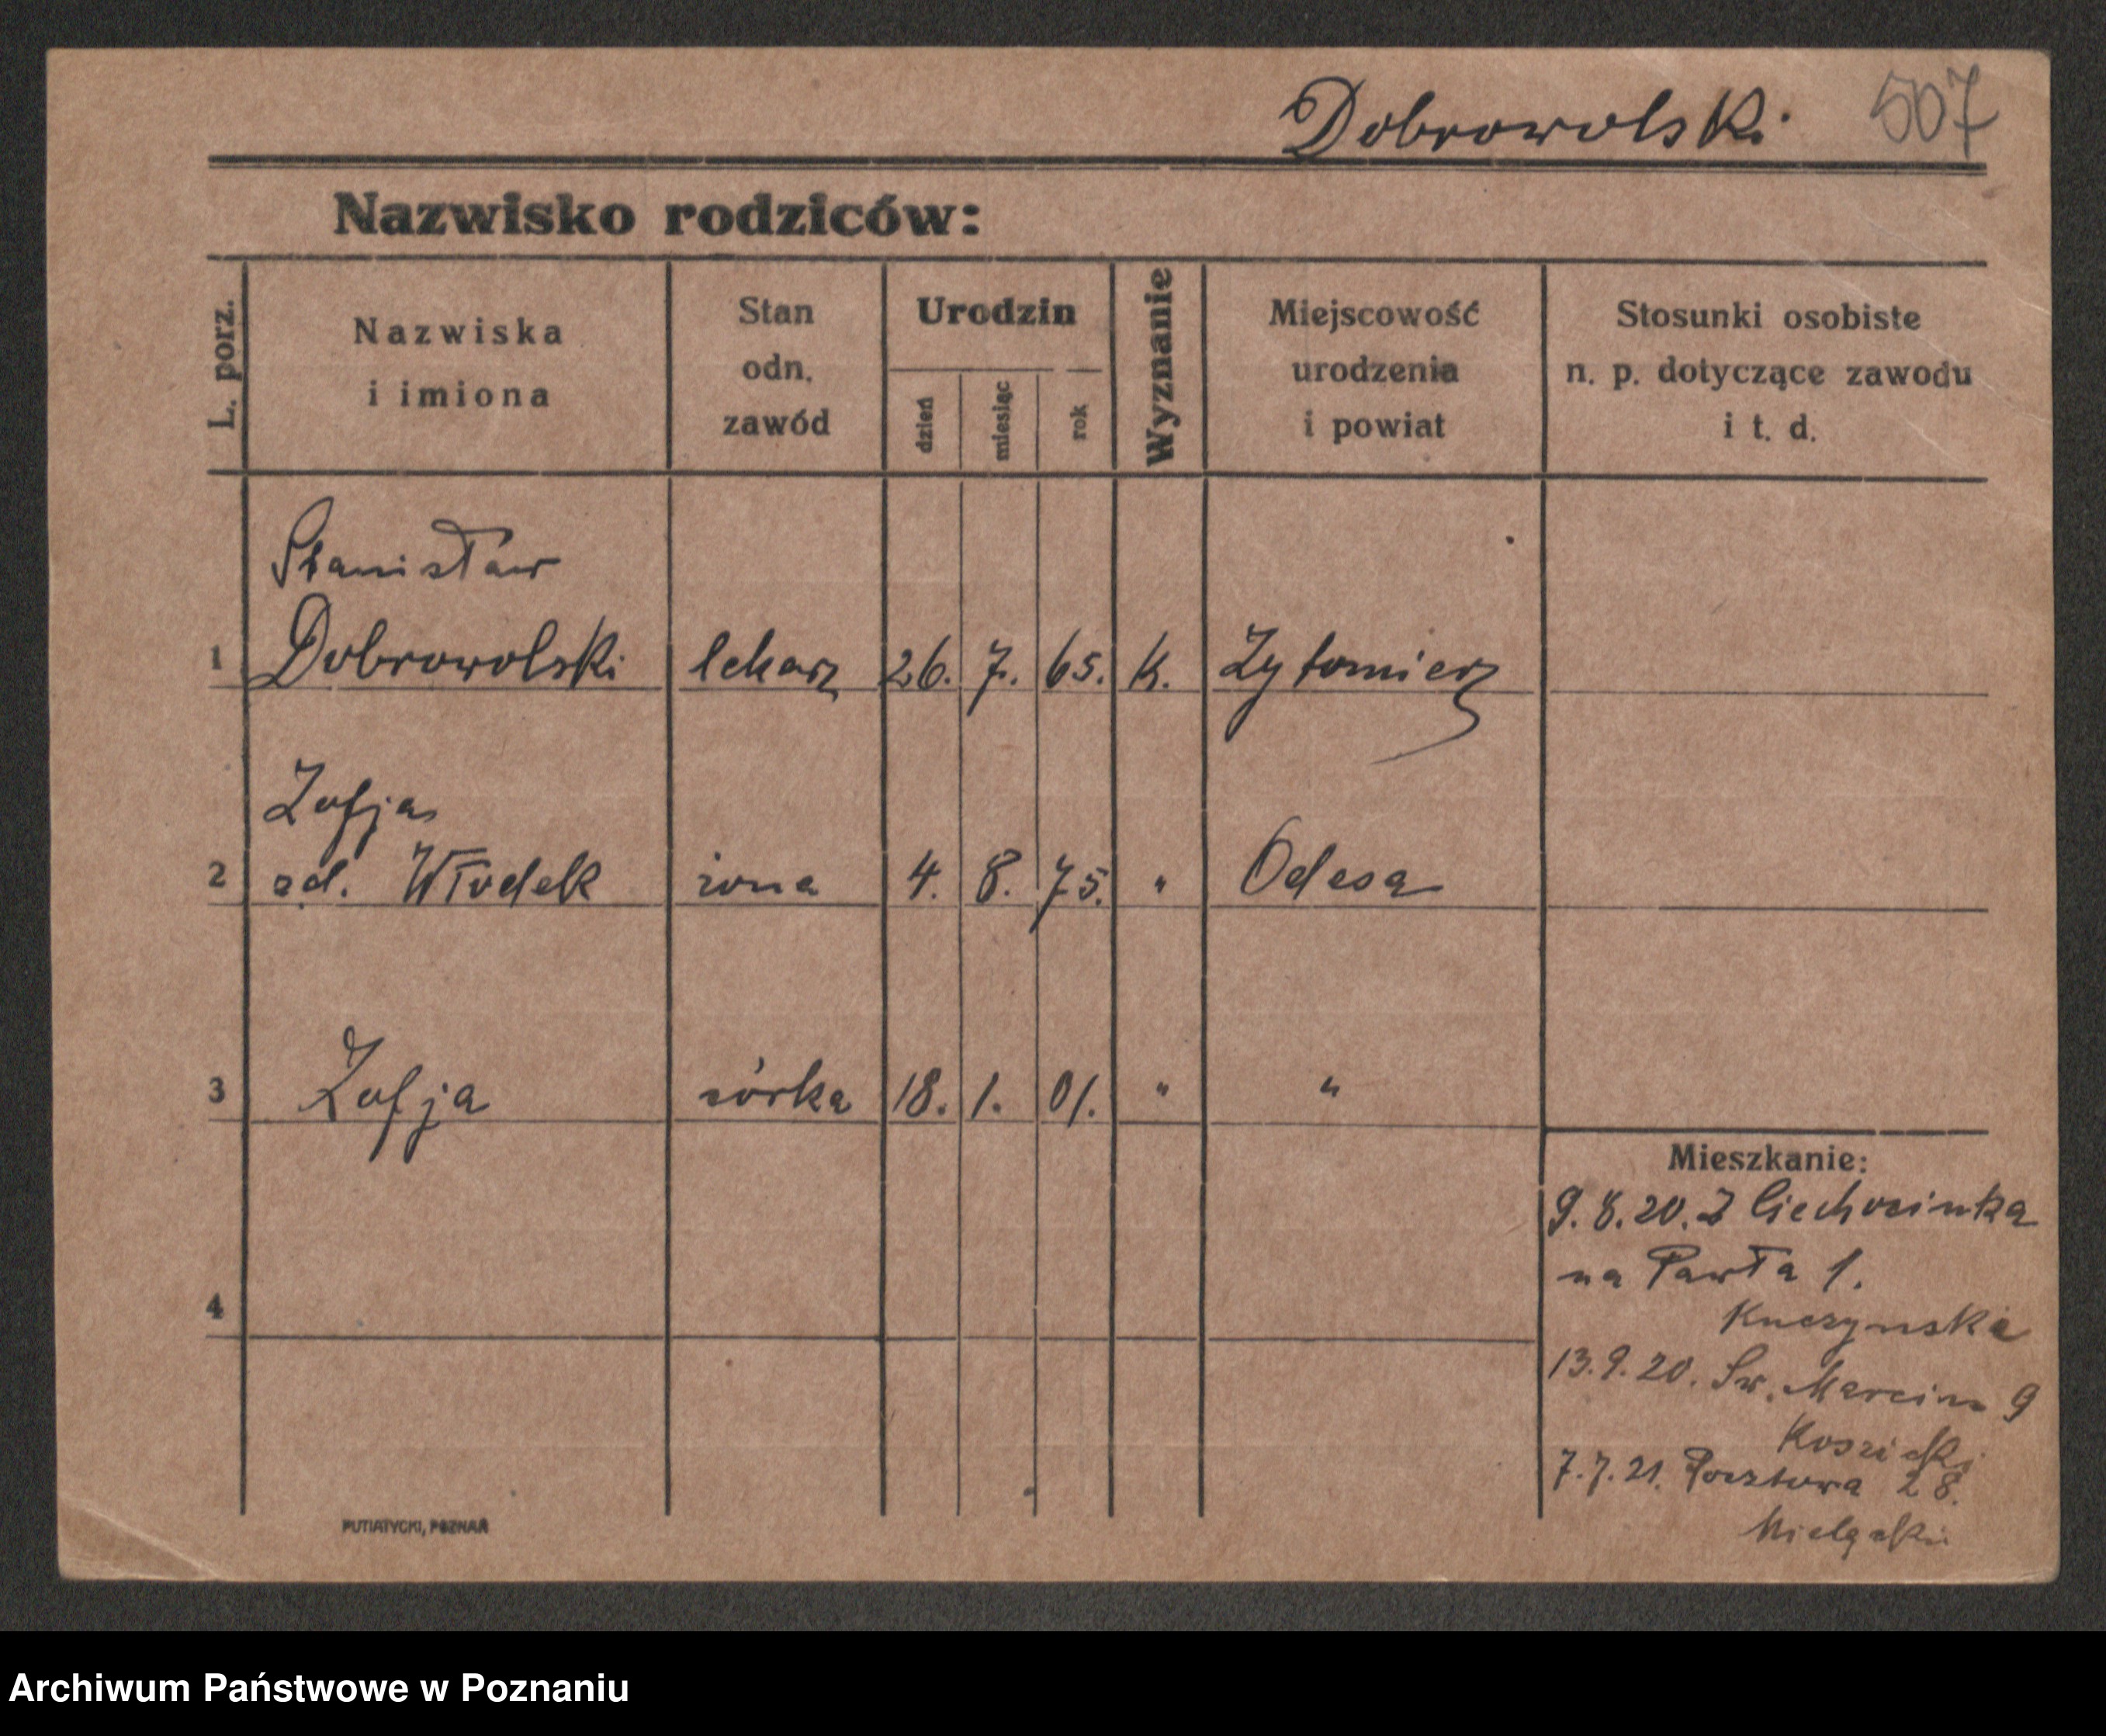 Dobrowolski 507
Nazwisko rodziców:
L. porz.
Nazwiska
i imiona
Stan
odn.
zawód
Urodzin
dzień
miesiąc
rok
Wyznanie
Miejscowość
urodzenia
i powiat
Stosunki osobiste
n. p. dotyczące zawodu
i t. d.
Stanisław
1 Dobrowolski lekarz 26. 7. 65. K. Żytomierz
Zofja
2 zd. Włodek żona 4. 8. 75. " Odesa
3 Zofja córka 18. 1. 01. " "
4
Mieszkanie:
9.8.20. Z Ciechocinka
na Pawła 1.
13.9.20. Św. Marcin 9
7.7.21. Pocztowa 28.
PUTIATYCKI, POZNAŃ
Archiwum Państwowe w Poznaniu